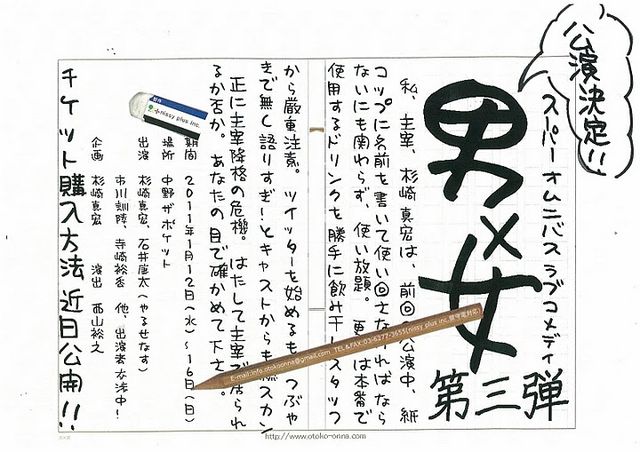 公演決定!!
スーパーオムニバスラブコメディ
男×女
第三弾
私、主宰、杉崎真宏は、前回の公演中、紙
コップに名前を書いて使い回さなければなら
ないにも関わらず、使い放題。更には本番で
使用するドリンクを勝手に飲み干しスタッフ
から厳重注意。ツイッターを始めるも つぶや
きで無し語りすぎ!とキャストからも スカン
正に主宰降格の危機。はたして主宰で居られ
るか否か。あなたの目で確かめて下 。
期間 2011年1月12日(水)〜16日(日)
場所 中野ザポケット
出演 杉崎真宏、石井康太(やるせなす)
市川訓睦、寺崎裕香 他、出演者 中!
企画 杉崎真宏 演出 西山裕之
チケット購入方法近日公開!!
nissy plus inc.
E-mail:info.otokoonna@gmail.com TEL&FAX:03-6277-3655(nissy plus inc.留守電対応)
http://www.otoko-onna.com